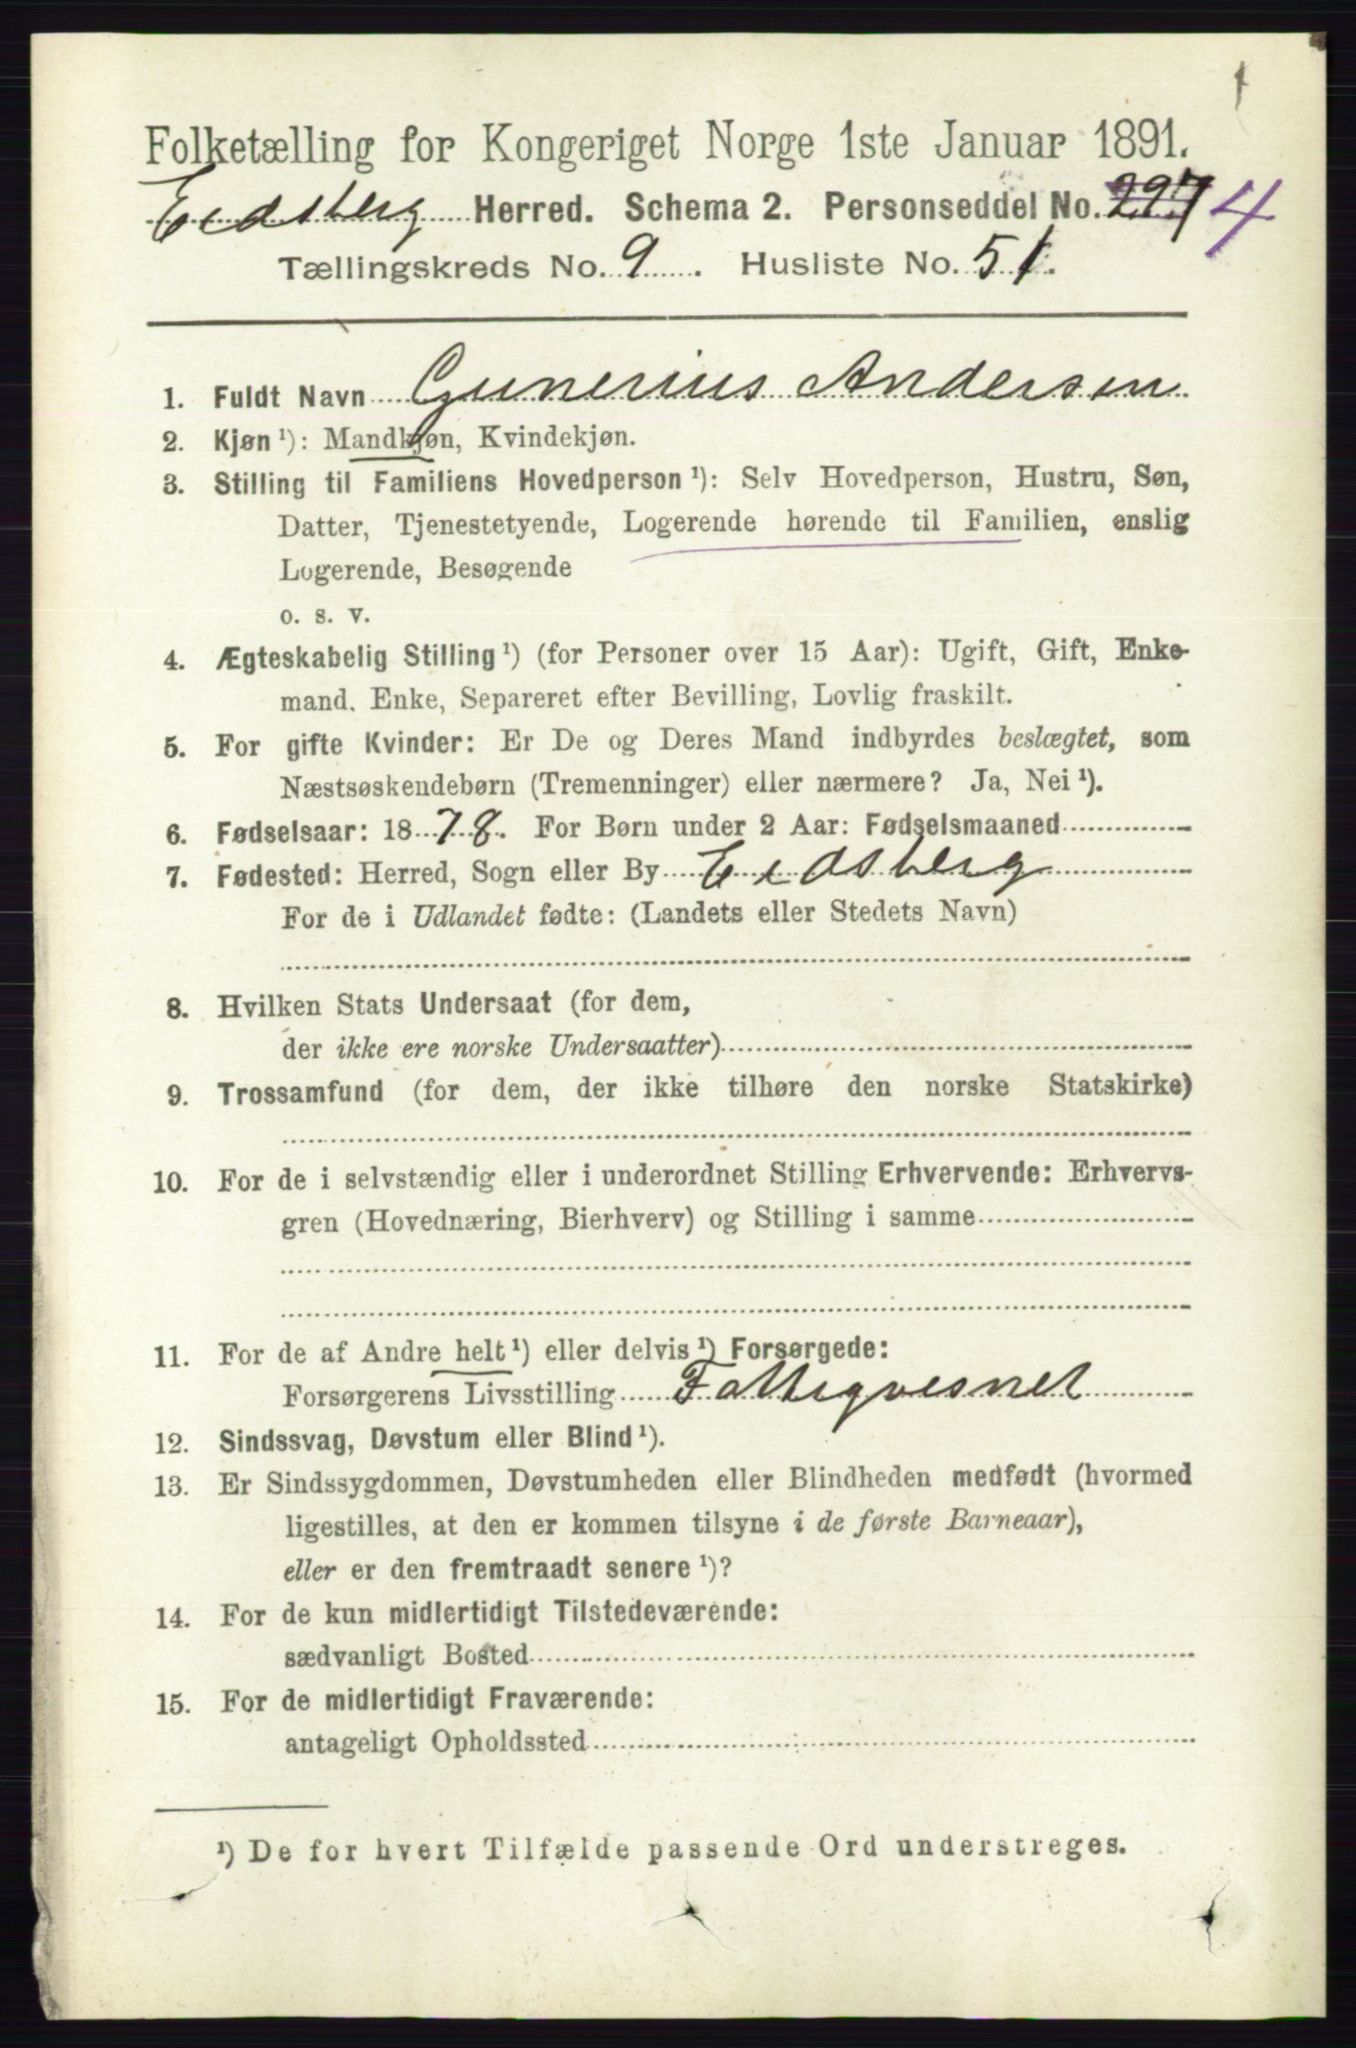 Folketælling for Kongeriget Norge 1ste Januar 1891.
Eidsberg Herred. Schema 2. Personseddel No. 297 4
Tællingskreds No. 9. Husliste No. 51.
1. Fuldt Navn Gunerius Andersen
2. Kjøn ¹): Mandkjøn, Kvindekjøn.
3. Stilling til Familiens Hovedperson ¹): Selv Hovedperson, Hustru, Søn,
Datter, Tjenestetyende, Logerende hørende til Familien, enslig
Logerende, Besøgende
o. s. v.
4. Ægteskabelig Stilling ¹) (for Personer over 15 Aar): Ugift, Gift, Enke-
mand, Enke, Separeret efter Bevilling, Lovlig fraskilt.
5. For gifte Kvinder: Er De og Deres Mand indbyrdes beslægtet, som
Næstsøskendebørn (Tremenninger) eller nærmere? Ja, Nei ¹).
6. Fødselsaar: 1878. For Børn under 2 Aar: Fødselsmaaned
7. Fødested: Herred, Sogn eller By Eidsberg
For de i Udlandet fødte: (Landets eller Stedets Navn)
8. Hvilken Stats Undersaat (for dem,
der ikke ere norske Undersaatter)
9. Trossamfund (for dem, der ikke tilhøre den norske Statskirke)
10. For de i selvstændig eller i underordnet Stilling Erhvervende: Erhvervs-
gren (Hovednæring, Bierhverv) og Stilling i samme
11. For de af Andre helt ¹) eller delvis ¹) Forsørgede:
Forsørgerens Livsstilling Fattigvesnet
12. Sindssvag, Døvstum eller Blind ¹).
13. Er Sindssygdommen, Døvstumheden eller Blindheden medfødt (hvormed
ligestilles, at den er kommen tilsyne i de første Barneaar),
eller er den fremtraadt senere ¹)?
14. For de kun midlertidigt Tilstedeværende:
sædvanligt Bosted
15. For de midlertidigt Fraværende:
antageligt Opholdssted
¹) De for hvert Tilfælde passende Ord understreges.